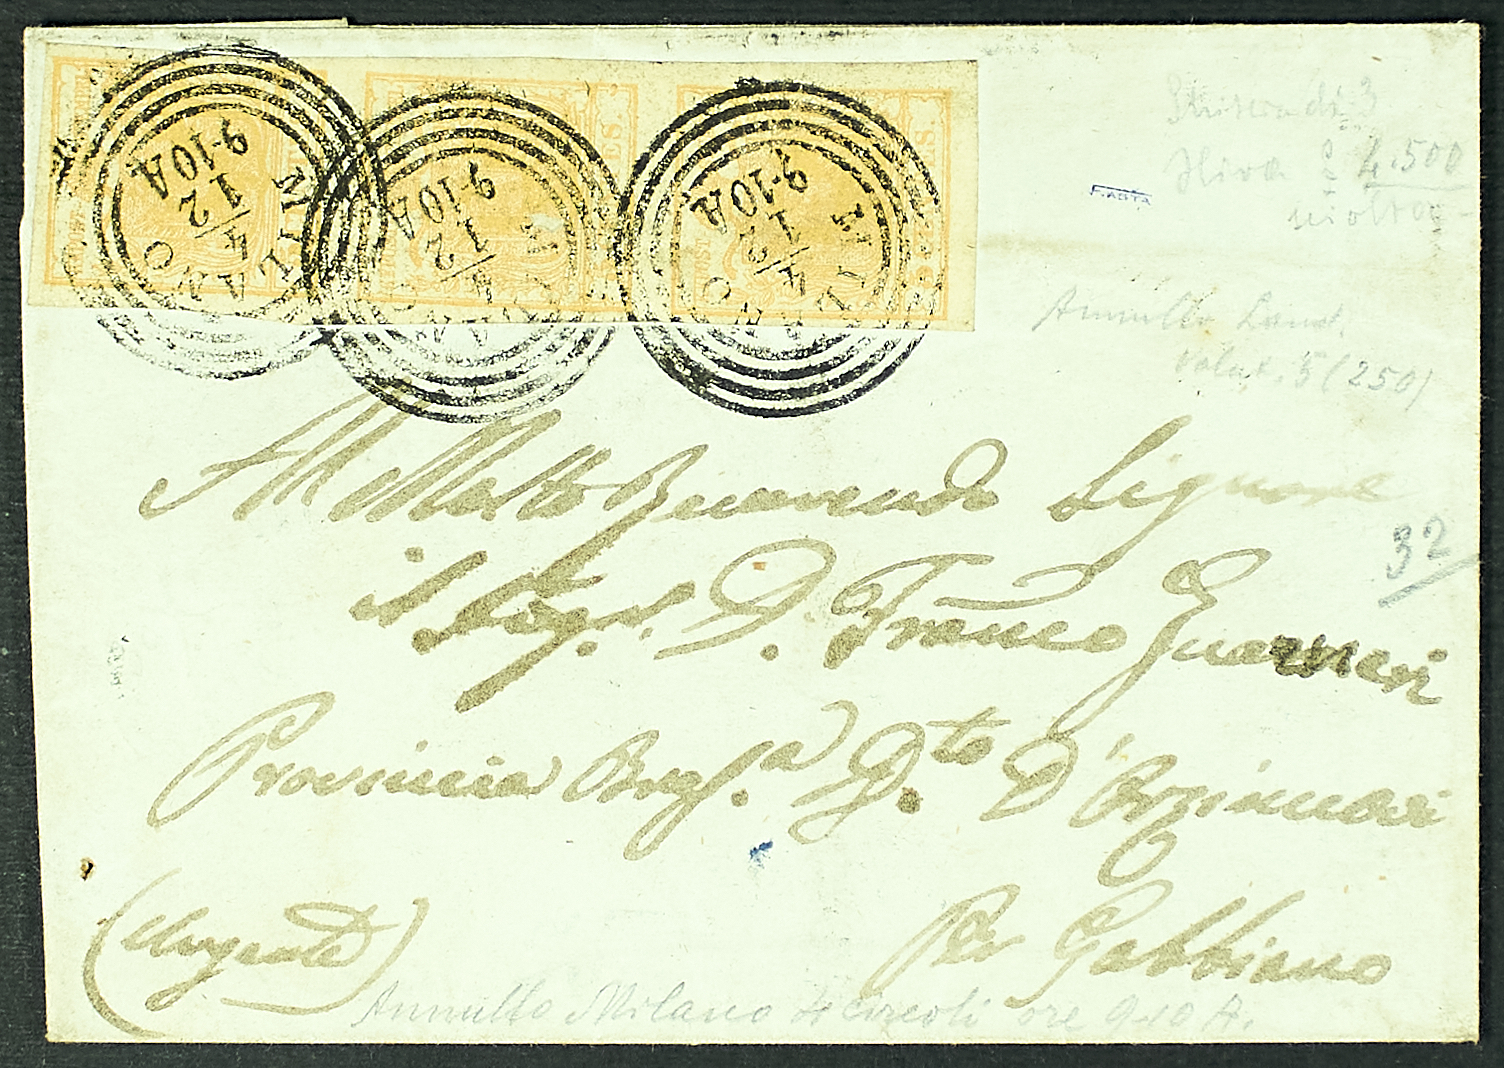 MILANO
9·10A
12
4
MILANO
9·10A
12
4
MILANO
9·10A
12
4
Striscia di 3
£ 4.500
Annullo Lomb.
valut. 5 (250)
32
Al Molto Reverendo Signore
il Sig.r D. Franco Guarneri
Provincia Berg.a D.to D'Arzinuovi
Per Gabbiano
(Urgente)
Annullo Milano 4 circoli ore 9-10 A.